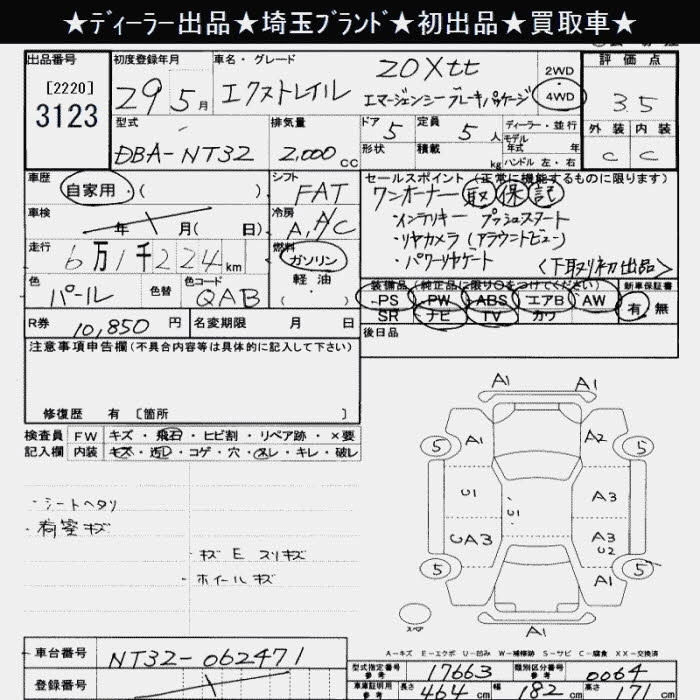 ★ディーラー出品★埼玉ブランド★初出品★買取車★
出品番号 初度登録年月 車名・グレード 評価点
[2220]
3123
29 5月 エクストレイル 20Xtt 2WD 3.5
エマージェンシーブレーキパッケージ 4WD
型式 排気量 ドア 5 定員 5人 ディーラー・並行 外装 内装
DBA-NT32 2,000cc 形状 積載 kg モデル年式 年 C C
ハンドル 左・右
車歴 シフト セールスポイント (正常に機能するものに限ります)
自家用・( ) FAT ワンオーナー 取 保 記
車検 年 月( 日) 冷房 A,A/C ・インテリキー プッシュスタート
・リヤカメラ(アラウンドビュー)
走行 6万1千224km 燃料 ガソリン ・パワーリヤゲート
軽油 <下取り初出品>
色 パール 色替 色コード QAB ・( )
装備品 (純正品に限り○をつけてください) 新車保証書
PS PW ABS エアB AW 有・無
SR ナビ TV カワ
R券 10,850円 名変期限 月 日 後日品
注意事項申告欄(不具合内容等は具体的に記入して下さい)
修復歴 有 〔箇所 〕
検査員 FW キズ・飛石・ヒビ割・リペア跡・×要
記入欄 内装 キズ・汚レ・コゲ・穴・スレ・キレ・破レ
・シートヘタリ
・荷室キズ
・キズ E スリキズ
・ホイールキズ
A1 A1
5 A1 A2 5
U1 U1 A3
UA3 A3
U2
5 A1 5
スペア
A1
A-キズ E-エクボ U-凹み W-補修跡 S-サビ C-腐食 XX-交換済
車台番号 NT32-062471
型式指定番号 参考 17663 類別区分番号 参考 0064
登録番号
車庫証明用 参考 長さ 464cm 幅 182cm 高さ 171cm